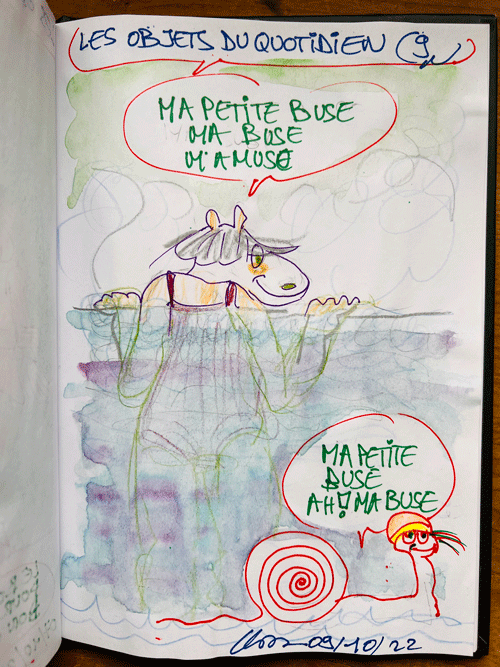 LES OBJETS DU QUOTIDIEN
MA PETITE BUSE
MA BUSE
M'AMUSE
MA PETITE
BUSE
AH! MA BUSE
09/10/22